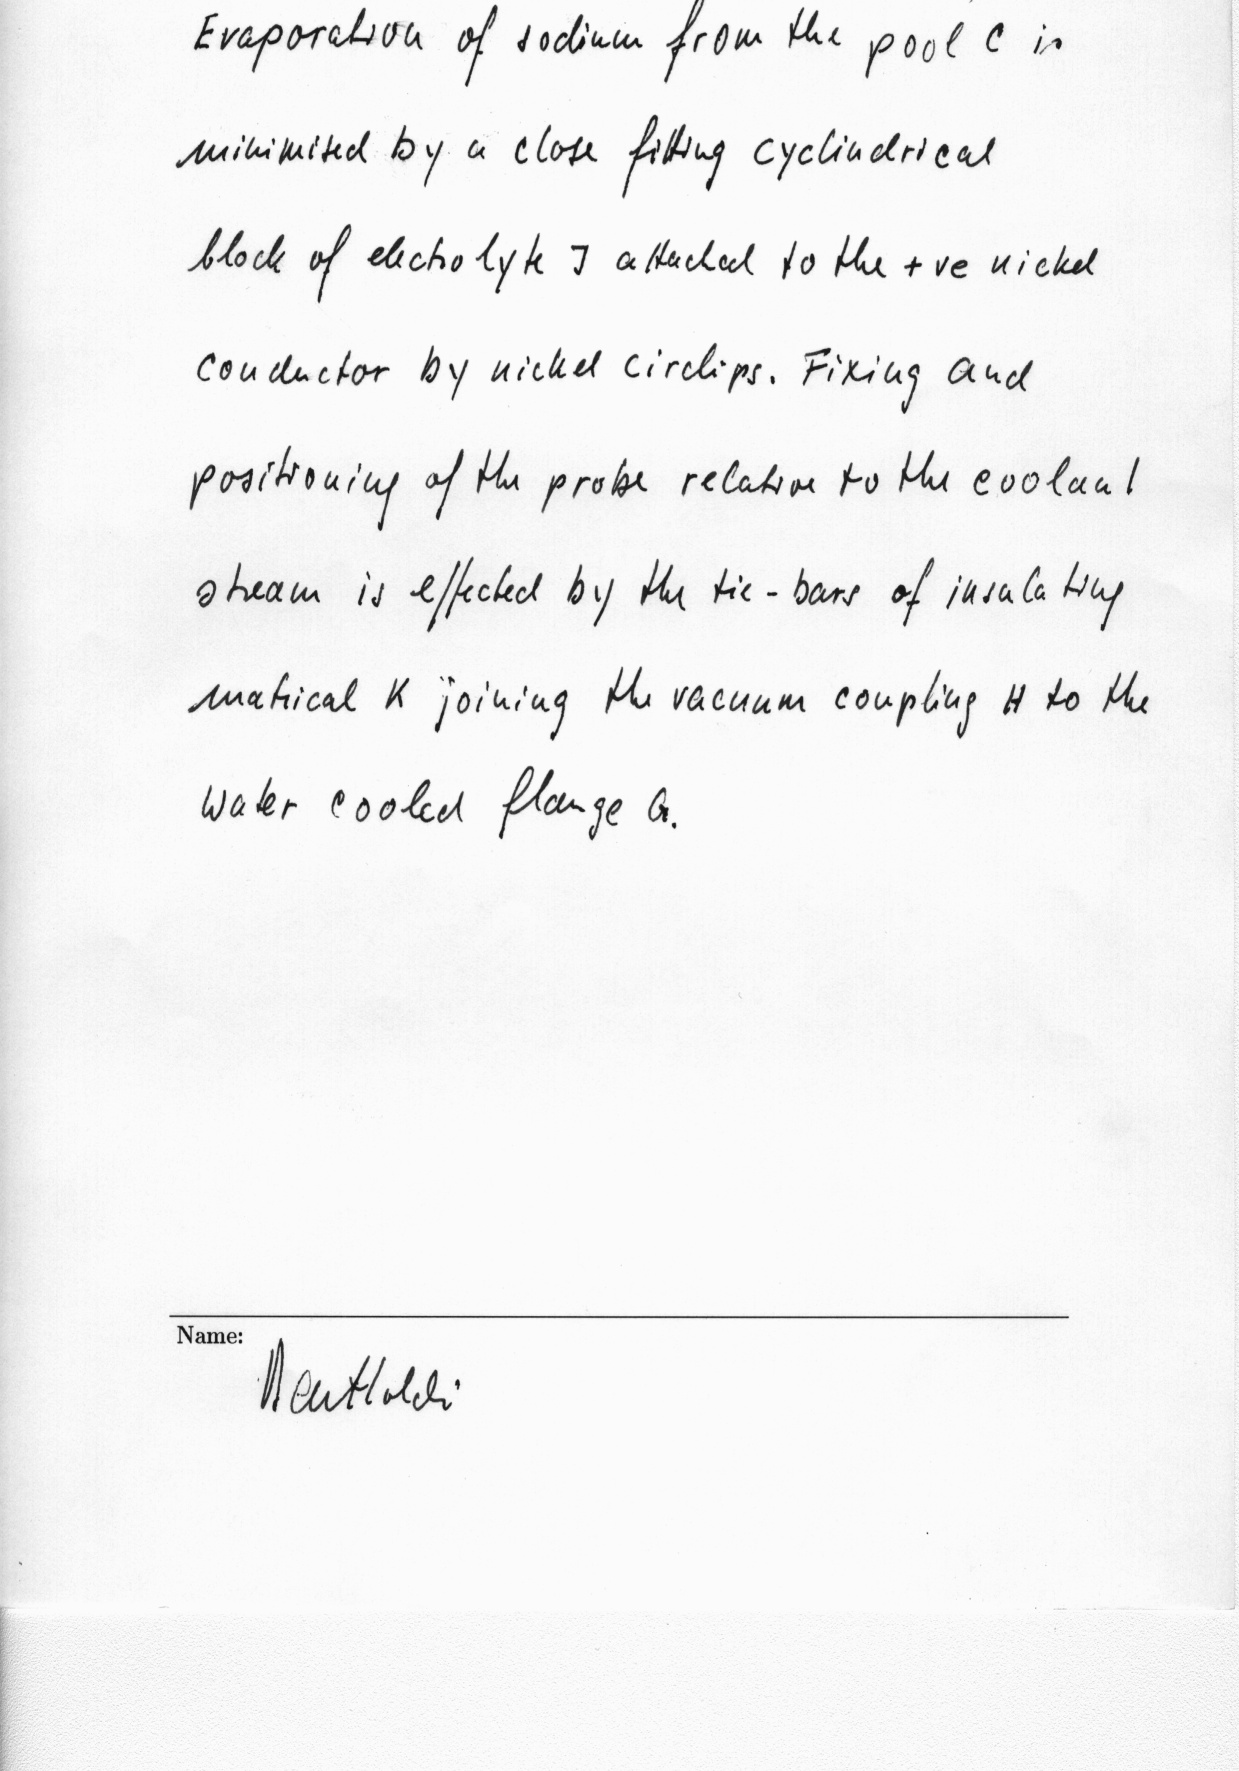 Evaporation of sodium from the pool C is
minimised by a close fitting cyclindrical
block of electrolyte J attached to the +ve nickel
conductor by nickel circlips. Fixing and
positioning of the probe relative to the coolant
stream is effected by the tie-bars of insulating
material K joining the vacuum coupling H to the
water cooled flange G.
Name: